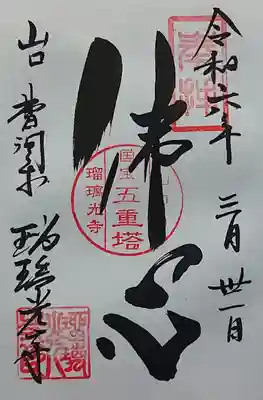 奉拝
令和六年
三月卅一日
佛心
国宝
五重塔
瑠璃光寺
山口 曹洞宗
瑠璃光寺